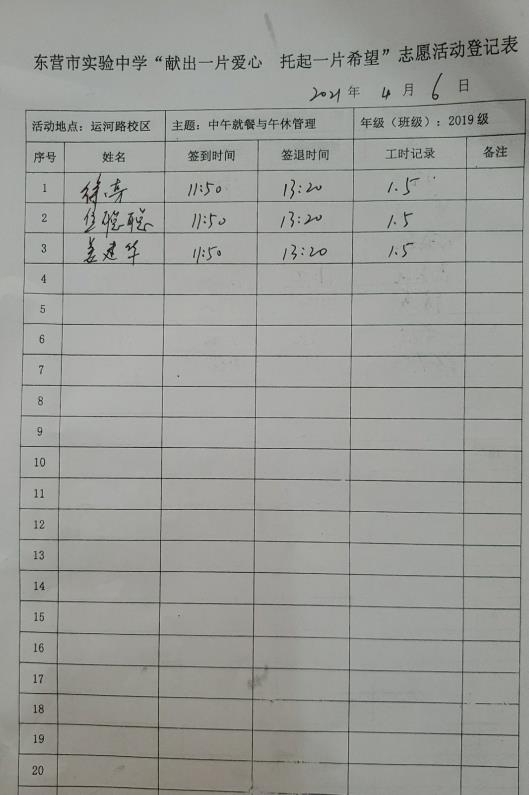 东营市实验中学“献出一片爱心 托起一片希望”志愿活动登记表
2021 年 4 月 6 日
活动地点：运河路校区 主题：中午就餐与午休管理 年级（班级）：2019 级
序号 姓名 签到时间 签退时间 工时记录 备注
1 11:50 13:20 1.5
2 任聪聪 11:50 13:20 1.5
3 姜建华 11:50 13:20 1.5
4
5
6
7
8
9
10
11
12
13
14
15
16
17
18
19
20